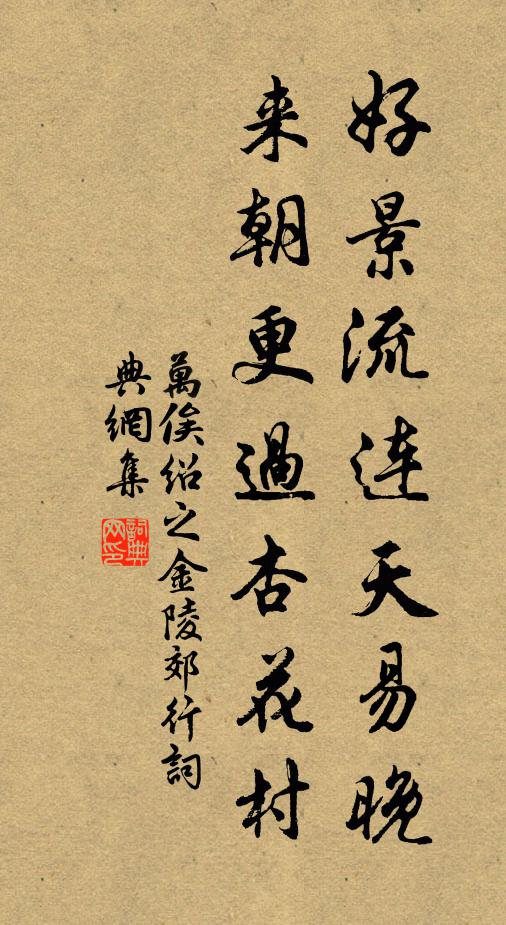 好景流连天易晚
来朝更過杏花村
萬俟绍之金陵郊行詞
典網集
詞典网印